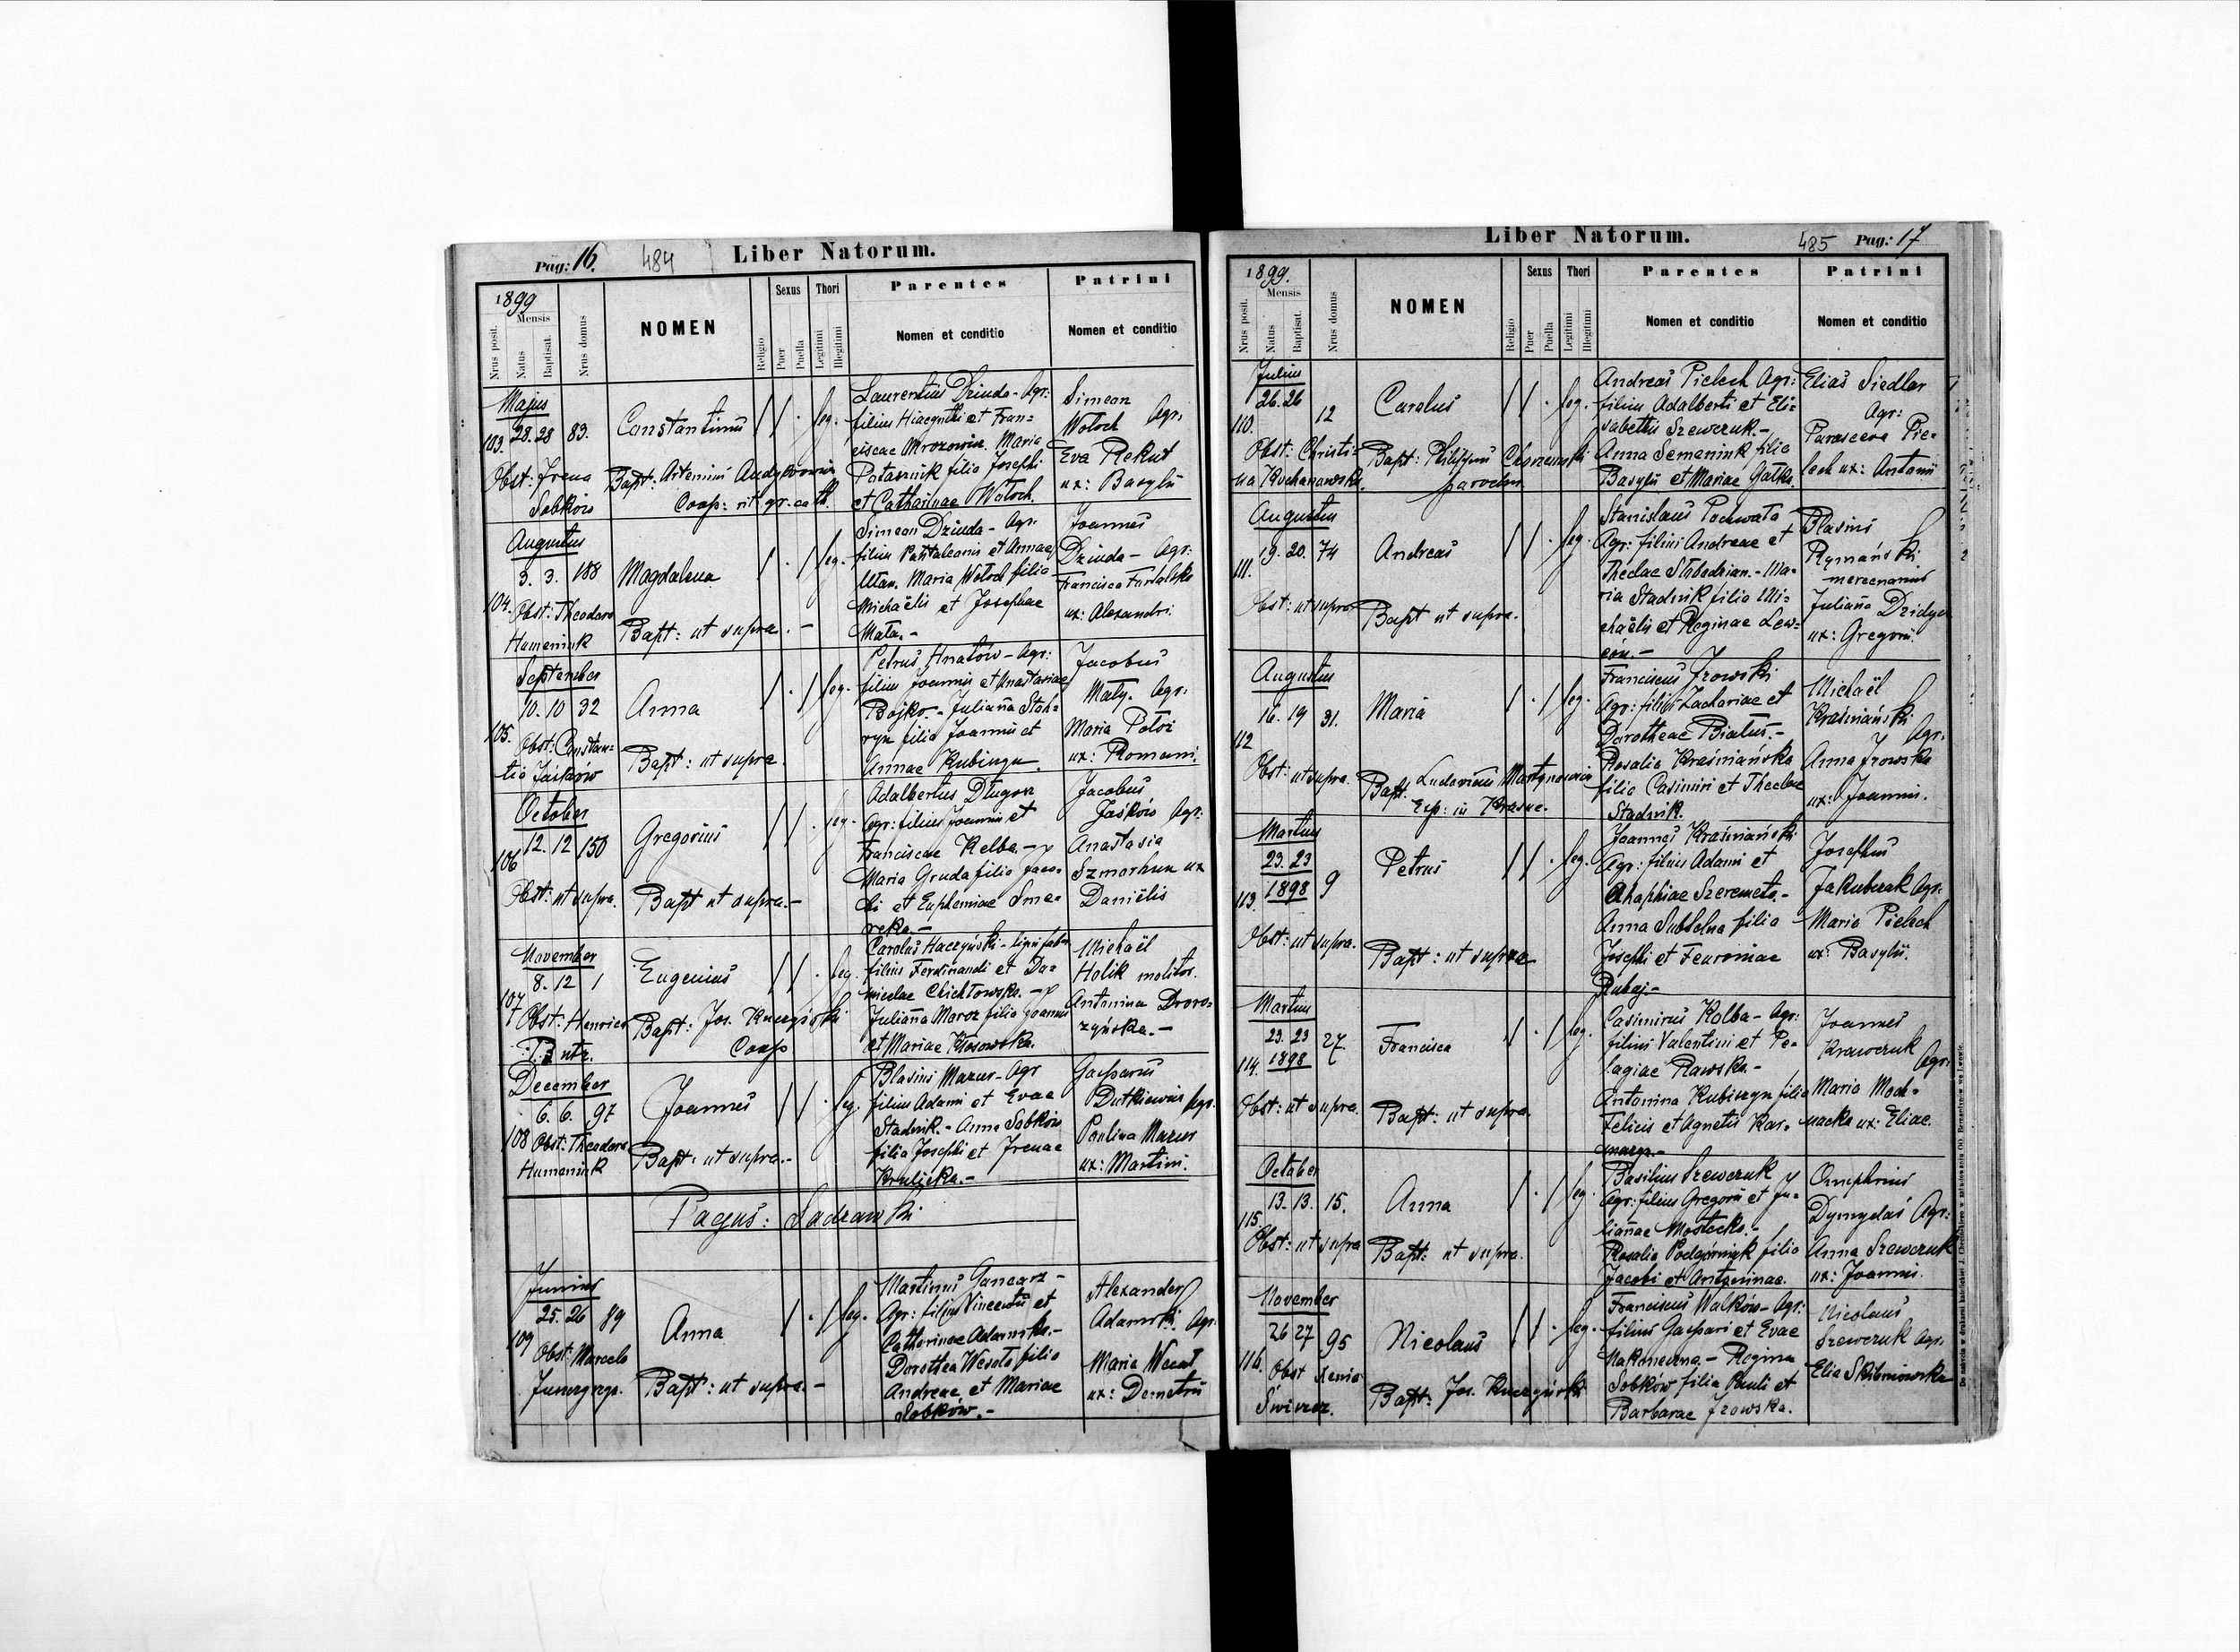 Pag: 16.
484
Liber Natorum.
1899
Mensis
Nrus posit.
Natus
Baptisat.
Nrus domus
NOMEN
Religio
Sexus
Puer
Puella
Thori
Legitimi
Illegitimi
Parentes
Nomen et conditio
Patrini
Nomen et conditio
Majus
103. 28. 28 83.
Obst: Irena
Sobków
Constantinus
Bapt: Artemius
Coop: rit. gr. cath.
leg.
Laurentius Dziuda - Agr:
filius Hiacynthi et Fran=
ciscae Mrozowicz. Maria
Potasznik filia Josephi
et Catharinae Wołoch.
Simeon
Wołoch Agr.
Eva Rekut
ux: Basylii
Augustus
104. 3. 3. 188
Obst: Theodora
Humeniuk
Magdalena
Bapt: ut supra. -
leg.
Simeon Dziuda - Agr.
filius Pantaleonis et Annae
Maria Wołoch filia
Michaëlis et Josephae
Mata. -
Joannes
Dziuda - Agr:
Francisca
ux: Alexandri.
September
105. 10. 10 32
Obst: Constan=
tia Jaśków
Anna
Bapt: ut supra.
leg.
Petrus Hnatów - Agr:
filius Joannis et Anastasiae
Bojko. - Julianna Stah=
ryn filia Joannis et
Annae Kubinyn.
Jacobus
Mały. Agr:
Maria
ux: Romani.
October
106 12. 12 150
Obst: ut supra.
Gregorius
Bapt ut supra. -
leg.
Adalbertus Długosz
Agr: filius Joannis et
Franciscae Kelba. -
Maria Gruda filia Jaco=
bi et Euphemiae Sme=
reka. -
Jacobus
Jaśków Agr:
Anastasia
Szmorhun ux
Daniëlis
November
107 8. 12 1
Obst: Henrica
Eugenius
Bapt: Jos. Kuczyński
Coop
leg.
Carolus Haczyński - ligni fab.
filius Ferdinandi et Do=
micelae Chichłowska. -
Julianna Moroz filia Joannis
et Mariae Kłosowska.
Michaël
Holik molitor.
Antonina
December
108 6. 6. 97
Obst: Theodora
Humeniuk
Joannes
Bapt: ut supra. -
leg.
Blasius Mazur - Agr
filius Adami et Evae
Stadnik. - Anna Sobków
filia Josephi et Irenae
Krulicka. -
Gasparus
Dutkiewicz Agr.
Paulina Mazur
ux: Martini.
Pagus: Sadzawki
Junius
109 25. 26 89
Obst: Marcela
Anna
Bapt: ut supra. -
leg.
Martinus Gancarz -
Agr: filius Vincentii et
Catharinae Adamska. -
Dorothea Wesoła filia
Andreae et Mariae
Sobków. -
Alexander
Adamski. Agr.
Maria
ux: Demetrii
Liber Natorum.
485
Pag: 17
1899.
Mensis
Nrus posit.
Natus
Baptisat.
Nrus domus
NOMEN
Religio
Sexus
Puer
Puella
Thori
Legitimi
Illegitimi
Parentes
Nomen et conditio
Patrini
Nomen et conditio
Julius
110. 26. 26 12
Obst: Christi=
na Kochanowska.
Carolus
Bapt: Philippus
parochus
leg.
Andreas Pielech Agr:
filius Adalberti et Eli=
sabethis Szewczuk. -
Anna Semeniuk filia
Basylii et Mariae Gałka.
Elias Siedlar
Agr:
Parasceva Pie=
lech ux: Antonii
Augustus
111. 19. 20. 74
Obst: ut supra
Andreas
Bapt ut supra.
leg.
Stanislaus Pochwała
Agr: filius Andreae et
Theclae - Ma=
ria Stadnik filia Mi=
chaëlis et Reginae Lew=
ców. -
Blasius
Rymański
mercenarius
Julianna
ux: Gregorii.
Augustus
112 16. 19 31.
Obst: ut supra.
Maria
Bapt. Ludovicus Martynowicz
Exp: in Krasne.
leg.
Franciscus Jzowski
Agr: filius Zachariae et
Dorotheae Białus. -
Rosalia Kraśniańska
filia Casimiri et Theclae
Stadnik.
Michaël
Kraśniański
Agr.
Anna Jzowska
ux: Joannis.
Martius
23. 23
113. 1898 9
Obst: ut supra.
Petrus
Bapt: ut supra
leg.
Joannes Kraśniański
Agr: filius Adami et
Ahaphiae Szeremeta. -
Anna filia
Josephi et Feuroniae
Rubaj. -
Josephus
Jakubczak Agr.
Maria Pielech
ux: Basylii.
Martius
23. 23 27.
114. 1898
Obst: ut supra.
Francisca
Bapt: ut supra.
leg.
Casimirus Kolba - Agr:
filius Valentini et Pe=
lagiae Rawska. -
Antonina Kubiszyn filia
Felicis et Agnetis Kar=
Joannes
Krawczuk
Agr:
Maria Moch=
nacka ux: Eliae.
October
115. 13. 13. 15.
Obst: ut supra
Anna
Bapt: ut supra.
leg.
Basilius Szewczuk
Agr: filius Gregorii et Ju=
liannae Mostecka. -
Rosalia Podgórniak filia
Jacobi et Antoninae.
Omphrius
Dymydas Agr:
Anna Szewczuk
ux: Joannis.
November
116. 26 27 95
Obst Xenia
Nicolaus
Bapt: Jos. Kuczyński
leg.
Franciscus Walków - Agr:
filius Gaspari et Evae
Nakonieczna. - Regina
Sobków filia Pauli et
Barbarae Jzowska.
Nicolaus
Szewczuk Agr.
Elia Skibniowska